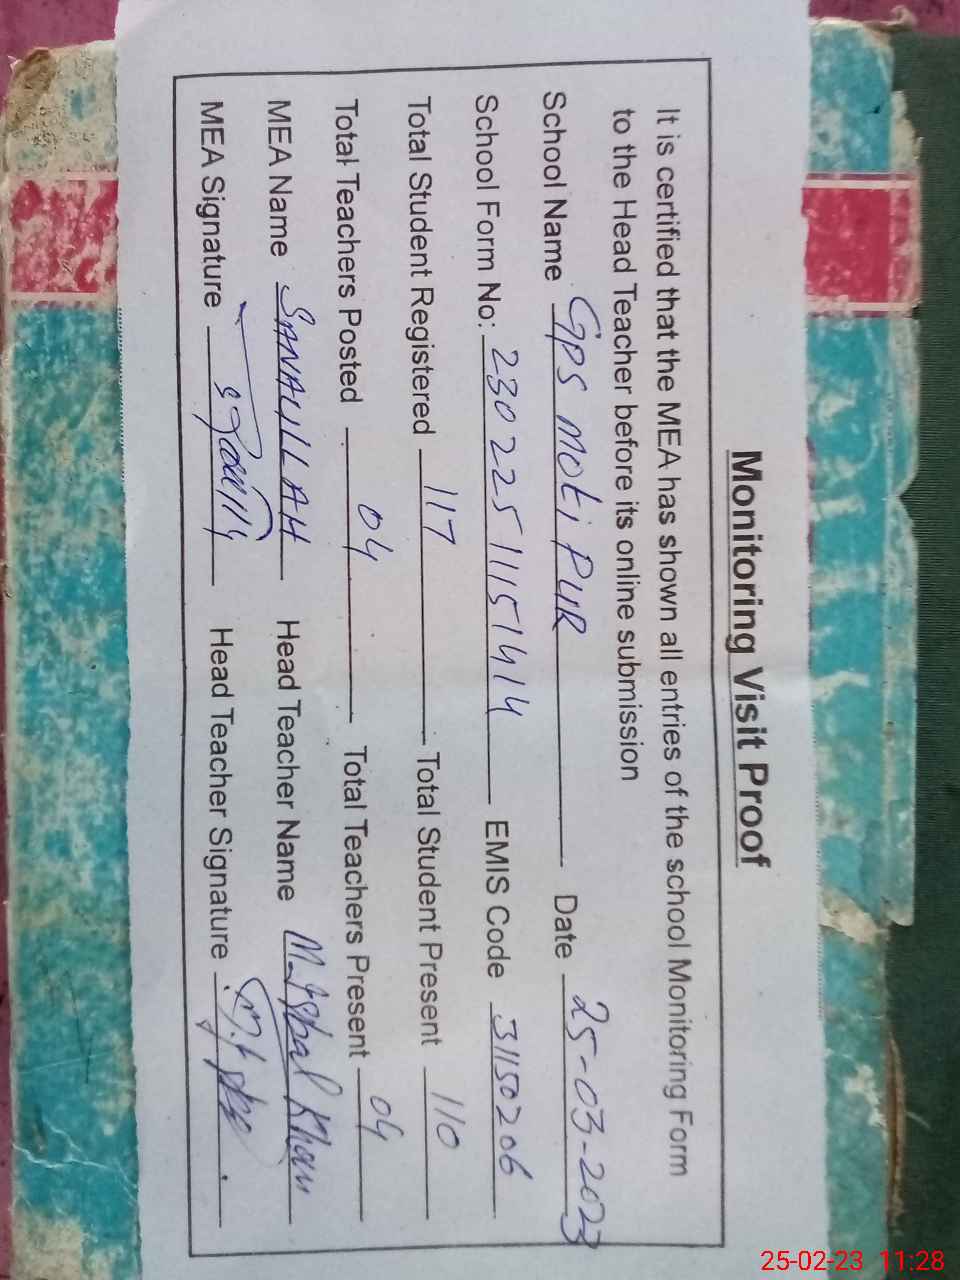 Monitoring Visit Proof
It is certified that the MEA has shown all entries of the school Monitoring Form
to the Head Teacher before its online submission
School Name GPS Moti PUR Date 25-03-2023
School Form No: 23022511151414 EMIS Code 31150206
Total Student Registered 117 Total Student Present 110
Total Teachers Posted 04 Total Teachers Present 04
MEA Name SANAULLAH Head Teacher Name M. Iqbal Khan
MEA Signature Head Teacher Signature
25-02-23 11:28